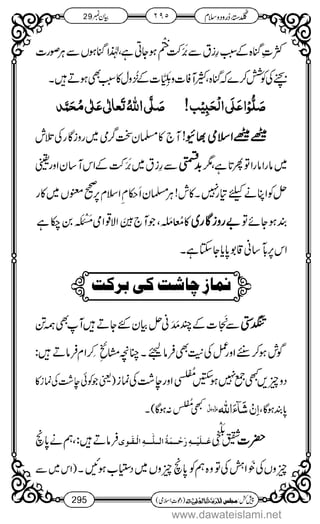 بیان نمبر 29
۲۹۵
گلدستۂ درود و سلام
کثرتِ گناہ کے سبب رزق سے بَرَکت ختم ہوجاتی ہے، لہٰذا گناہوں سے ہر صورت
بچنے کی کوشش کیجئے کہ گناہ کثیر آفات وبَلِیّات کے نُزول کا سبب بھی ہوتے ہیں۔
صَلُّوْا عَلَی الْحَبِیْب! صَلَّی اللهُ تَعَالٰی عَلٰی مُحَمَّد
میٹھے میٹھے اسلامی بھائیو! آج کا مسلمان سخت گرمی میں روزگار کی تلاش
میں مارا مارا تو پھرتا ہے، مگر بدقسمتی سے رِزق میں بَرَکت کے اس آسان اور یقینی
حل کو اپنانے کیلئے تیار نہیں۔ کاش! ہر مسلمان اَحکامِ اسلام پر صحیح معنوں میں کار
بند ہوجائے تو بے روزگاری کا مُعامَلہ، جو آج بین الاقوامی مسئلہ بن چکا ہے
اس پر بآسانی قابو پایا جاسکتا ہے۔
نمازِ چاشت کی برکت
تنگدستی سے نَجات کے چند مَدَنی حل بیان کئے جاتے ہیں آپ بھی ہمہ تن
گوش ہو کر سنئے اور عمل کی نیت بھی فرمالیجئے۔ چنانچہ مشائخِ کرام فرماتے ہیں:
دو چیزیں کبھی جمع نہیں ہوسکتیں مُفلسی اور چاشت کی نماز (یعنی جو کوئی چاشت کی نماز کا
پابند ہوگا، اِنْ شَآءَ اللّٰه کبھی مُفلس نہ ہوگا)۔
حضرت شقیق بلخی عَلَیْہِ رَحْمَۃُ اللّٰہِ الْقَوِی فرماتے ہیں: ہم نے پانچ
چیزوں کی خواہش کی تو وہ ہم کو پانچ چیزوں میں دستیاب ہوئیں۔ (اس میں سے)
295
پیش کش: مجلس اَلْمَدِیْنَۃُ الْعِلْمِیَّۃ (دعوتِ اسلامی)
www.dawateislami.net